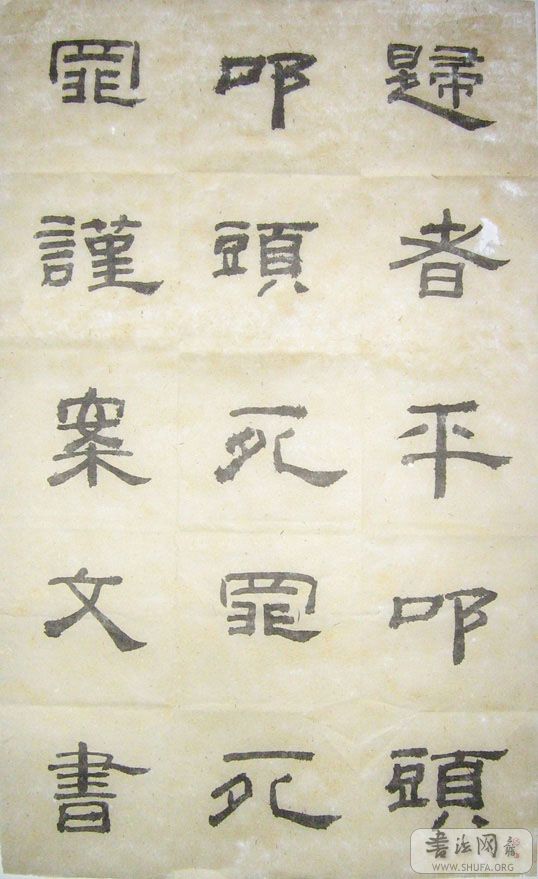 歸者平叩頭
叩頭死罪死
罪謹案文書
書法网
WWW.SHUFA.ORG